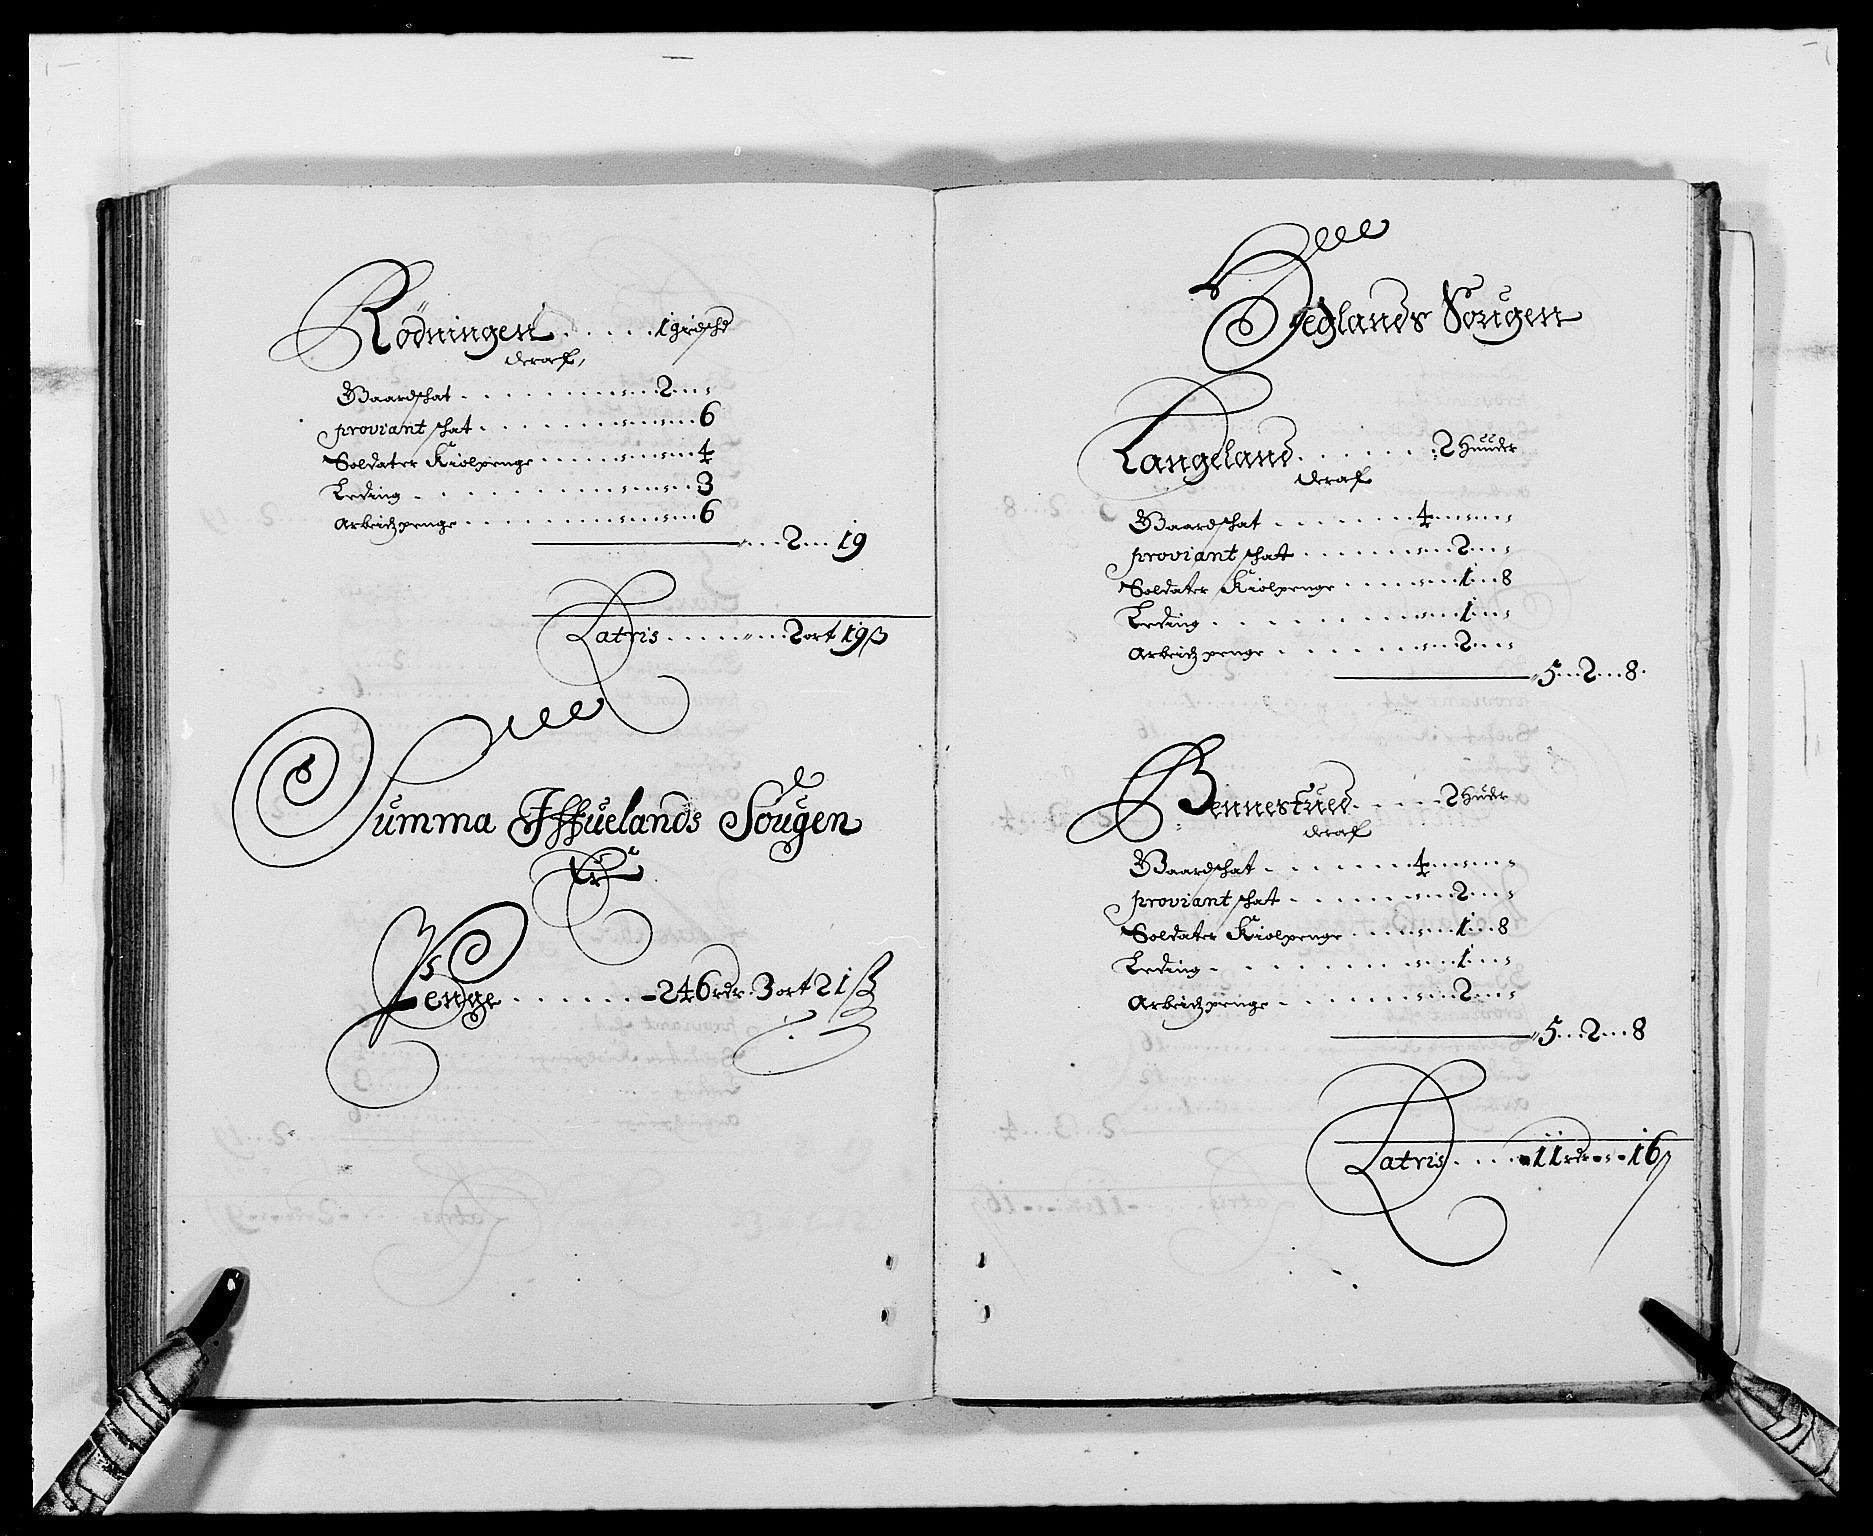 Rödningen . . . . . 1 grdschd
deraf,
Baardschat . . . . . . . . . 2 . . . ,
proviant schat . . . . . . . . . 6
Soldater Kiolpenge . . . . . . . . . 4
Leding . . . . . . . . . 3
Arbeidzpenge . . . . . . . . . 6
. . . 2 . . . 19
Latris . . . . . . . 2 ort 19 β
Summa Iffuelands Sougen
Er
Penge . . . . . . . 246 rdr. 3 ort 21 β
Heglands Sougen
Langeland . . . . . . . 2 Huuder
deraf
Baardschat . . . . . . . 4 . . . . . .
proviant schat . . . . . . . . . 2 . . . ,
Soldater Kiolpenge . . . . . . . . . 1 . . . 8
Leding . . . . . . . . . 1 . . . ,
Arbeidz penge . . . . . . . . . 2 . . . ,
5 . . . 2 . . . 8.
Bennestued . . . . . 2 Hudr
deraf
Baardschat . . . . . . . 4 . . . . . .
proviant schat . . . . . . . . . 2 . . . ,
Soldater Kiolpenge . . . . . . . . . 1 . . . 8
Leding . . . . . . . . . 1 . . . ,
Arbeidzpenge . . . . . . . . . 2 . . . ,
5 . . . 2 . . . 8
Latris . . . . - 11 rdr - , - 16 β